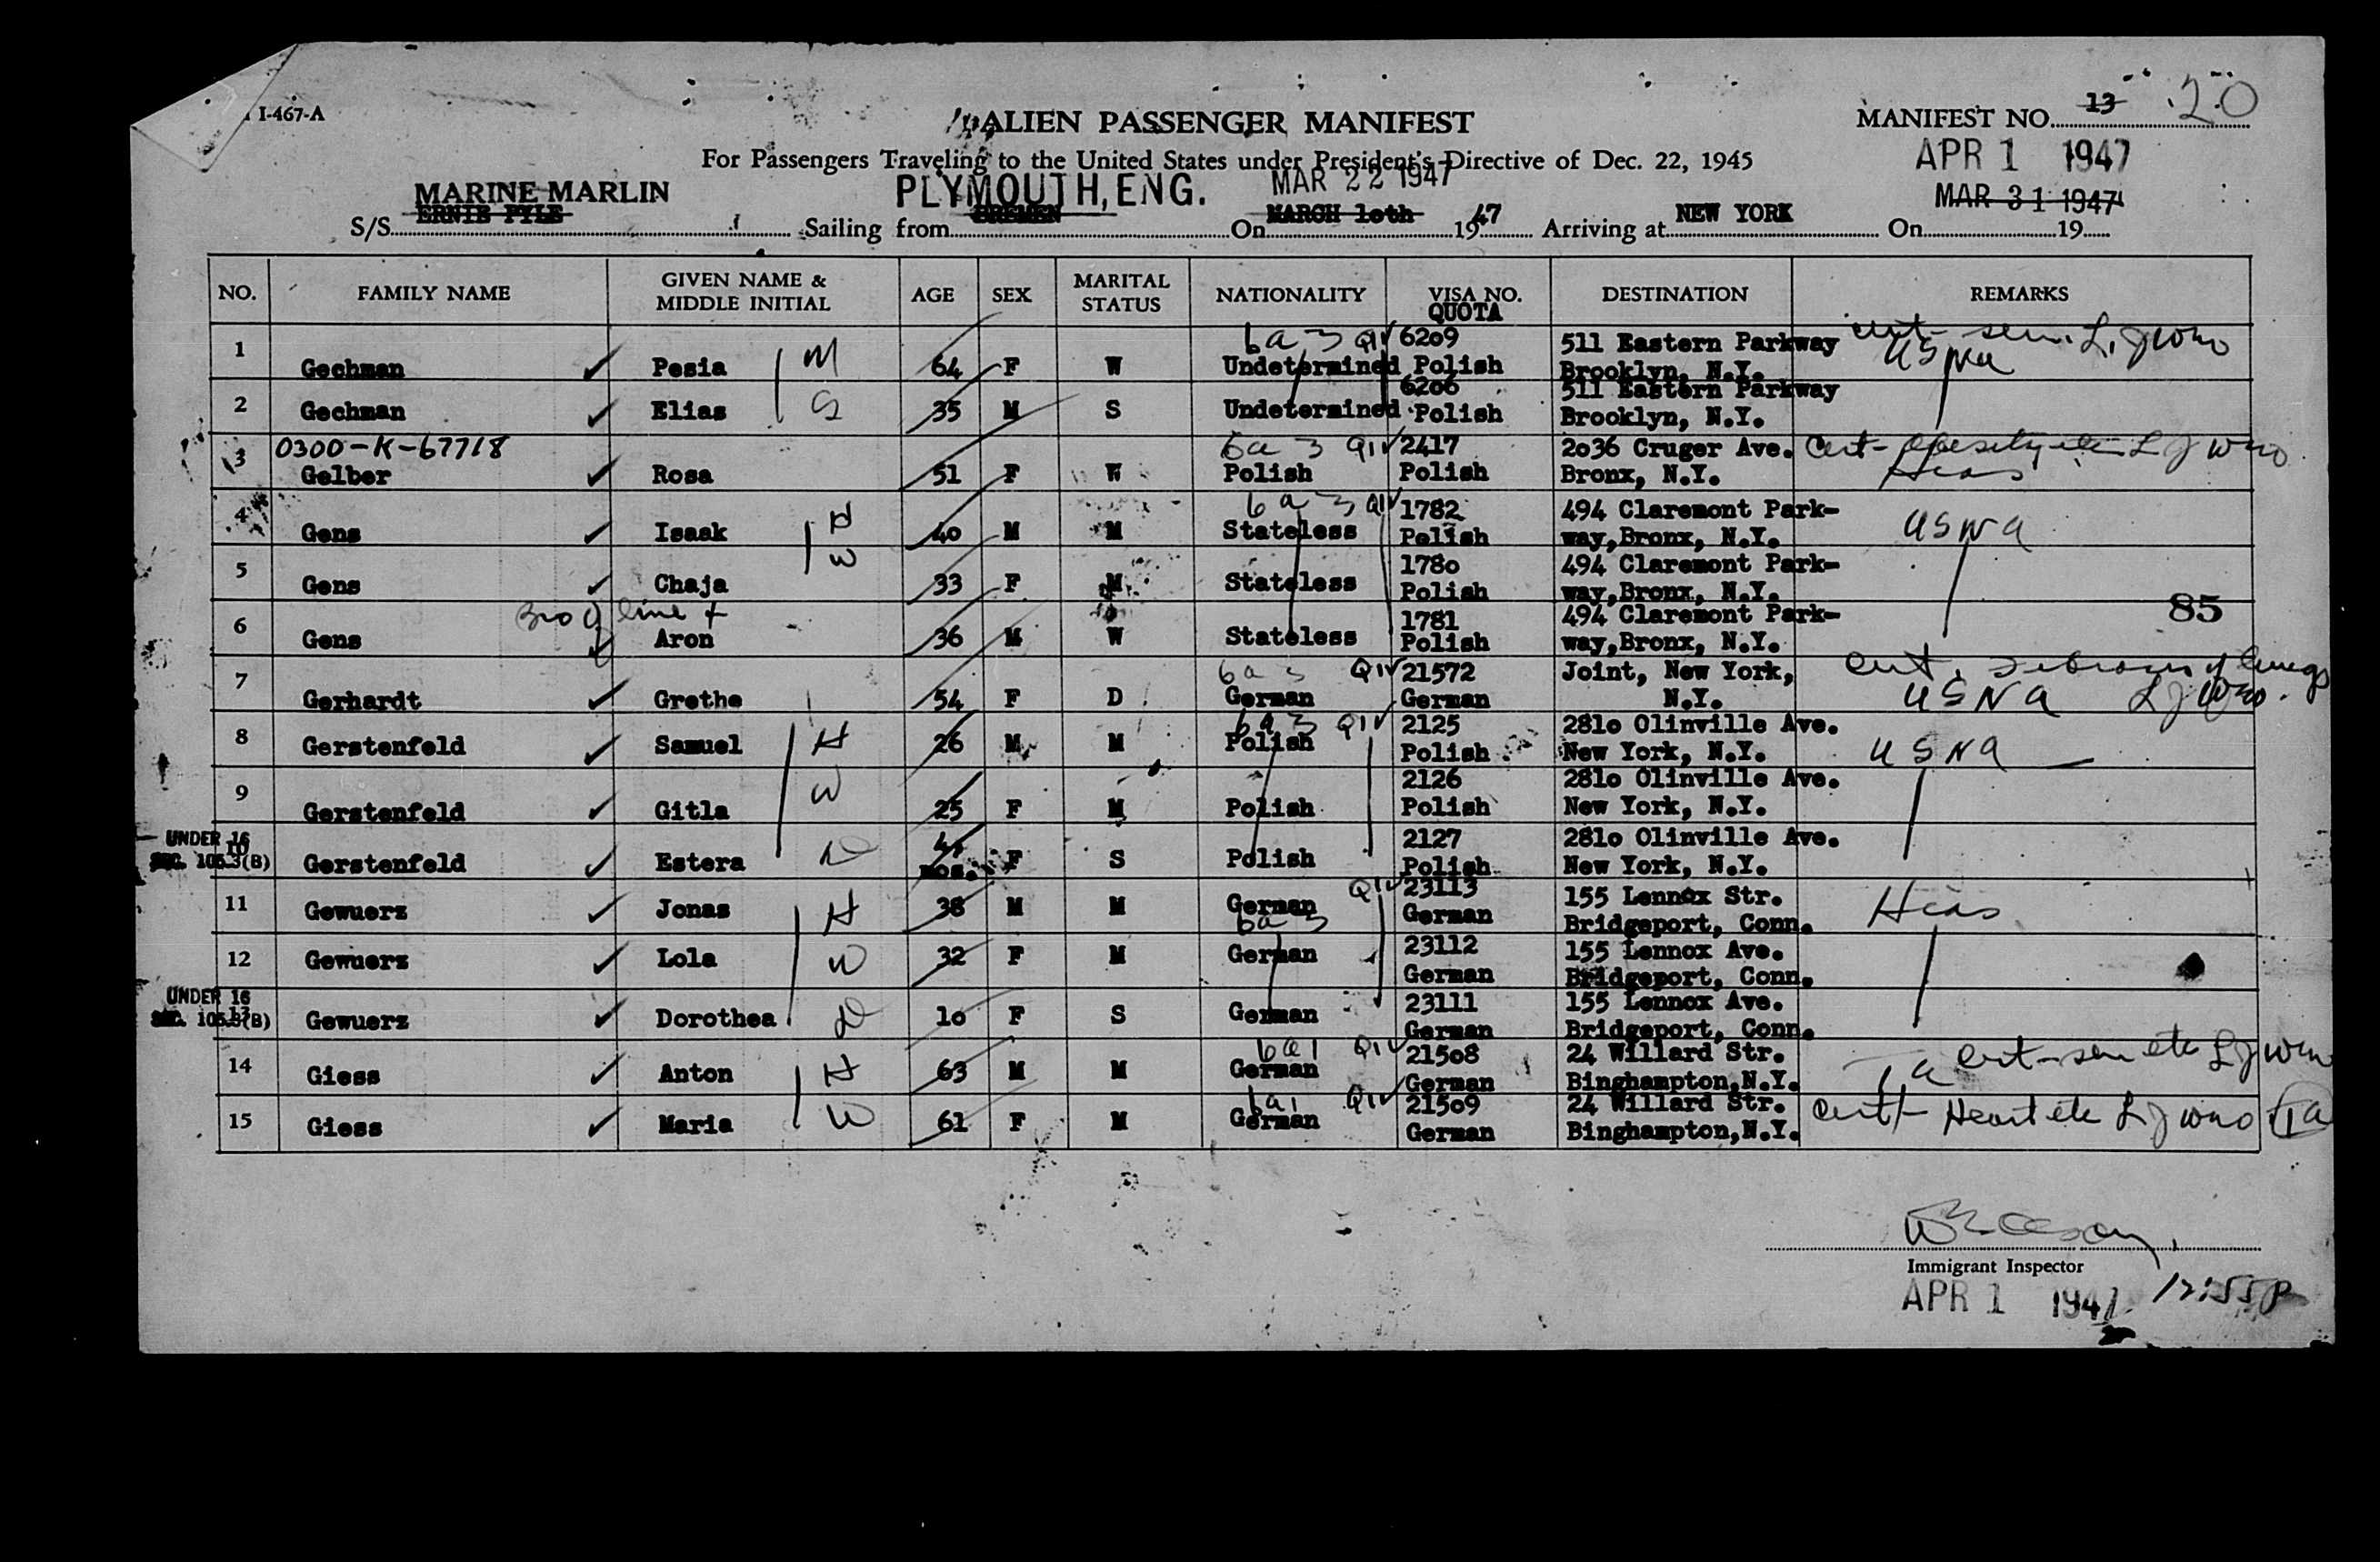 I-467-A
ALIEN PASSENGER MANIFEST
MANIFEST NO. 13 20
For Passengers Traveling to the United States under President's Directive of Dec. 22, 1945
APR 1 1947
MARINE MARLIN PLYMOUTH, ENG. MAR 22 1947 MAR 31 1947
S/S ERNIE PYLE Sailing from BREMEN On MARCH 10th 1947 Arriving at NEW YORK On 19
NO. FAMILY NAME GIVEN NAME & MIDDLE INITIAL AGE SEX MARITAL STATUS NATIONALITY VISA NO. QUOTA DESTINATION REMARKS
1 Gechman Pesia M 64 F W 6a3 Q1 Undetermined 6209 Polish 511 Eastern Parkway Brooklyn, N.Y. cert- sen. USNA
2 Gechman Elias S 35 M S Undetermined 6206 Polish 511 Eastern Parkway Brooklyn, N.Y.
0300-K-67718
3 Gelber Rosa 51 F W 6a3 Q1 Polish 2417 Polish 2036 Cruger Ave. Bronx, N.Y. Cert- obesity etc Hias
4 Gens Isaak H 40 M M 6a3 Q1 Stateless 1782 Polish 494 Claremont Park-way, Bronx, N.Y. USNA
5 Gens Chaja W 33 F M Stateless 1780 Polish 494 Claremont Park-way, Bronx, N.Y.
6 Gens Aron 36 M W Stateless 1781 Polish 494 Claremont Park-way, Bronx, N.Y. 85
7 Gerhardt Grethe 54 F D 6a3 Q1 German 21572 German Joint, New York, N.Y. cert. USNA
8 Gerstenfeld Samuel H 26 M M 6a3 Q1 Polish 2125 Polish 2810 Olinville Ave. New York, N.Y. USNA
9 Gerstenfeld Gitla W 25 F M Polish 2126 Polish 2810 Olinville Ave. New York, N.Y.
UNDER 16 SEC. 105.3(B)
10 Gerstenfeld Estera D mos. F S Polish 2127 Polish 2810 Olinville Ave. New York, N.Y.
11 Gewuerz Jonas H 38 M M German 6a3 Q1 23113 German 155 Lennox Str. Bridgeport, Conn. Hias
12 Gewuerz Lola W 32 F M German 23112 German 155 Lennox Ave. Bridgeport, Conn.
UNDER 16 SEC. 105.3(B)
13 Gewuerz Dorothea D 10 F S German 23111 German 155 Lennox Ave. Bridgeport, Conn.
14 Giess Anton H 63 M M 6a1 Q1 German 21508 German 24 Willard Str. Binghampton, N.Y. cert- sen etc
15 Giess Maria W 61 F M 6a1 Q1 German 21509 German 24 Willard Str. Binghampton, N.Y. cert- Heart etc
Immigrant Inspector
APR 1 1947 12:55 P